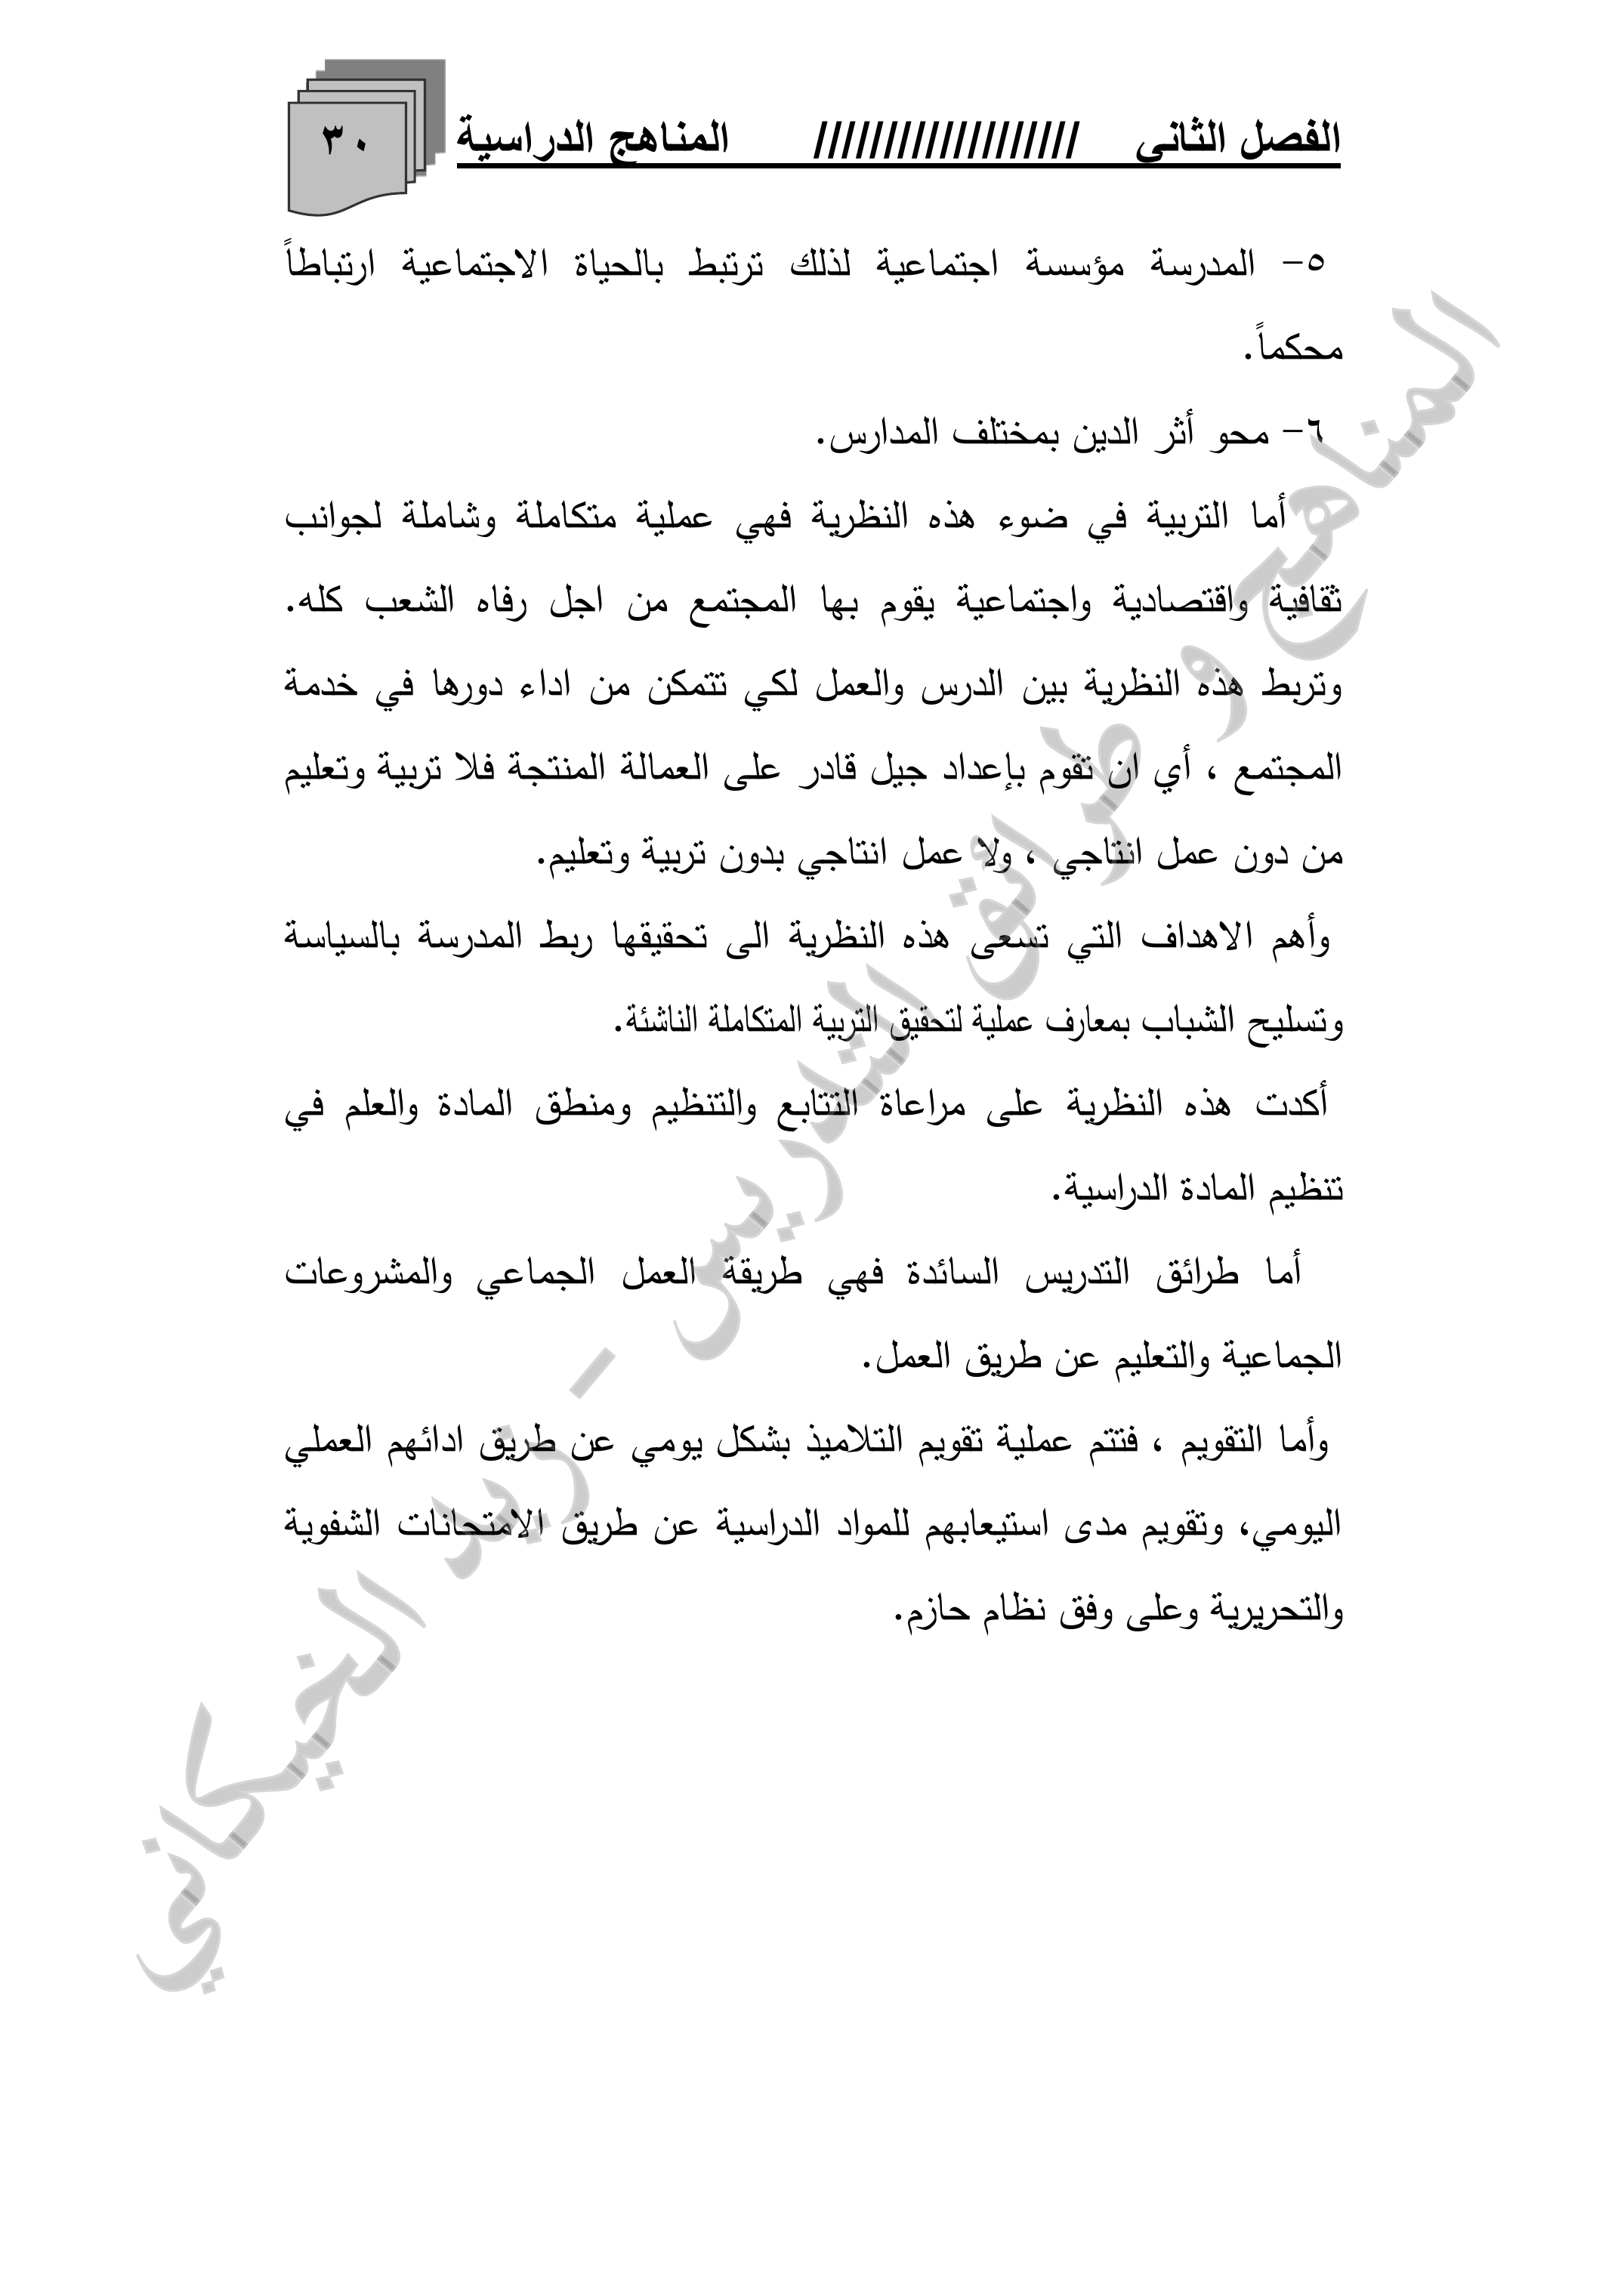 الفصل الثاني /////////////////// المناهج الدراسية ٣٠
٥- المدرسة مؤسسة اجتماعية لذلك ترتبط بالحياة الاجتماعية ارتباطاً
محكماً.
٦- محو أثر الدين بمختلف المدارس.
أما التربية في ضوء هذه النظرية فهي عملية متكاملة وشاملة لجوانب
ثقافية واقتصادية واجتماعية يقوم بها المجتمع من اجل رفاه الشعب كله.
وتربط هذه النظرية بين الدرس والعمل لكي تتمكن من اداء دورها في خدمة
المجتمع ، أي ان تقوم بإعداد جيل قادر على العمالة المنتجة فلا تربية وتعليم
من دون عمل انتاجي ، ولا عمل انتاجي بدون تربية وتعليم.
وأهم الاهداف التي تسعى هذه النظرية الى تحقيقها ربط المدرسة بالسياسة
وتسليح الشباب بمعارف عملية لتحقيق التربية المتكاملة الناشئة.
أكدت هذه النظرية على مراعاة التتابع والتنظيم ومنطق المادة والعلم في
تنظيم المادة الدراسية.
أما طرائق التدريس السائدة فهي طريقة العمل الجماعي والمشروعات
الجماعية والتعليم عن طريق العمل.
وأما التقويم ، فتتم عملية تقويم التلاميذ بشكل يومي عن طريق ادائهم العملي
اليومي، وتقويم مدى استيعابهم للمواد الدراسية عن طريق الامتحانات الشفوية
والتحريرية وعلى وفق نظام حازم.
المناهج و طرائق التدريس - زيد الخيكاني